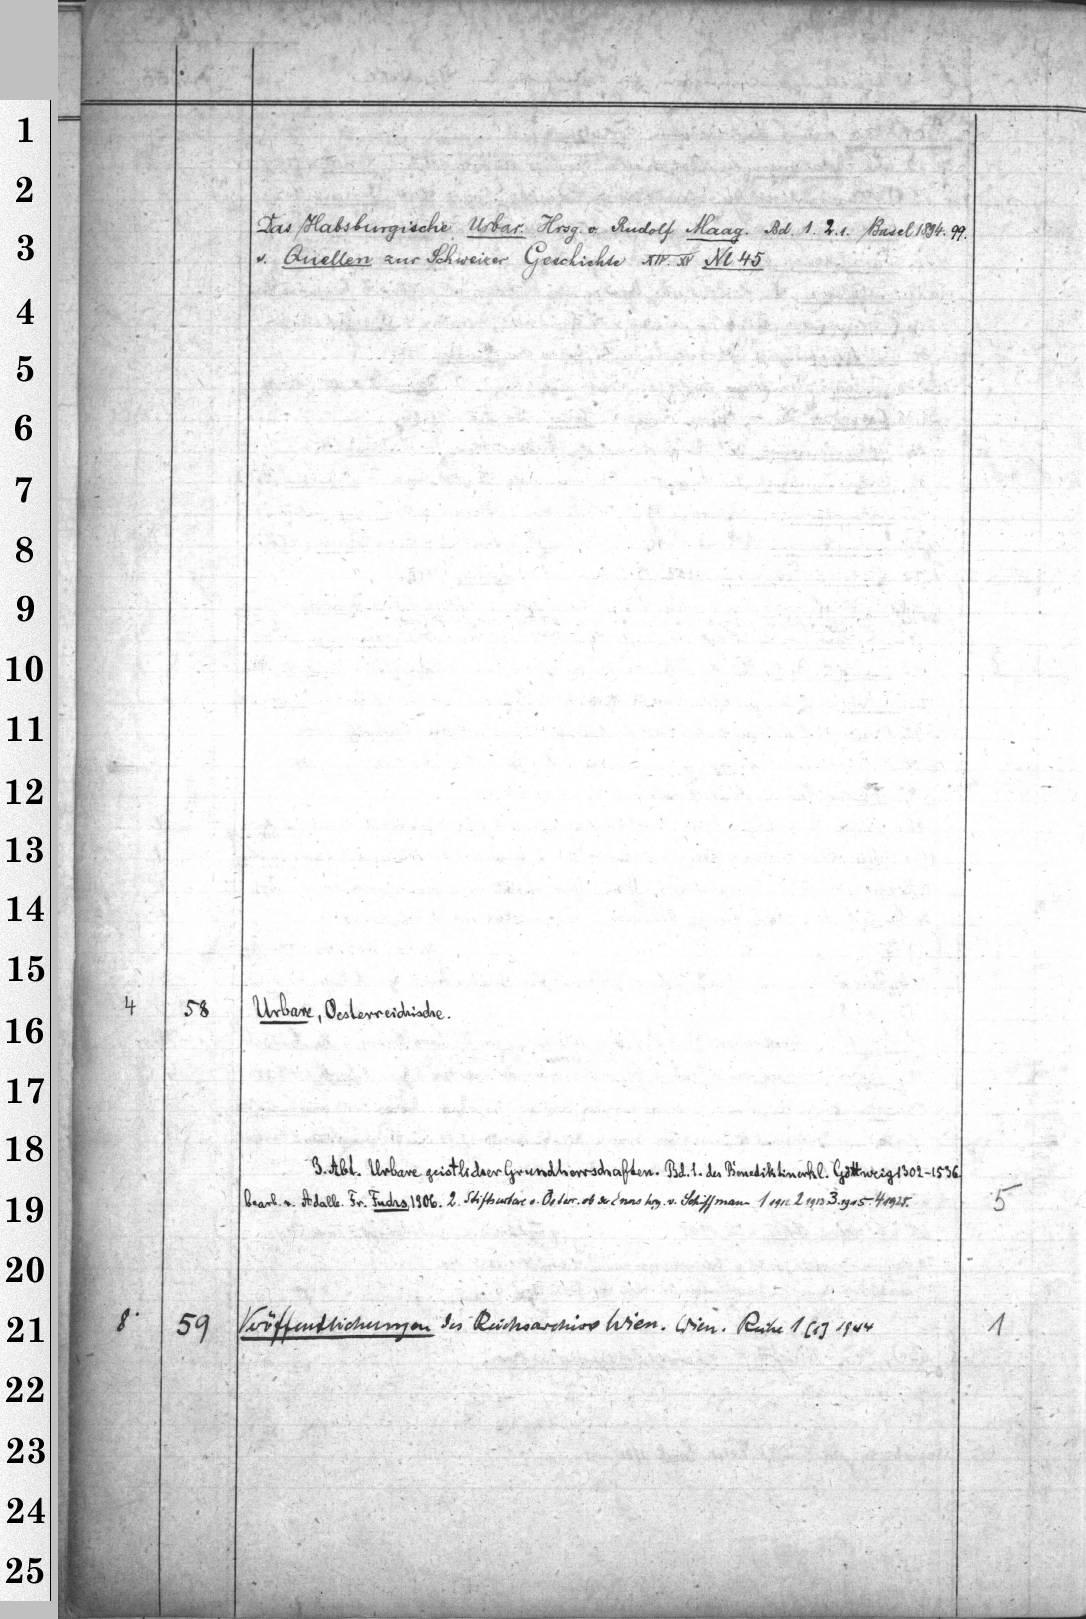 1
2
Das Habsburgische Urbar. Hrsg. v. Rudolf Maag. Bd. 1. 2.1. Basel 1894. 99.
3
v. Quellen zur Schweizer Geschichte XIV. XV Nl 45
4
5
6
7
8
9
10
11
12
13
14
15
4 58 Urbare, Oesterreichische.
16
17
18
3. Abt. Urbare geistlicher Grundherrschaften. Bd. 1. der Benediktinerkl. Göttweig 1302-1536
19
bearb. v. Adalb. Fr. Fuchs, 1906. 2. Stiftsurbare v. Öster. ob der Enns hrg. v. Schiffmann 1 1912 2 1913 3. 1915. 4 1925. 5
20
21
8° 59 Veröffentlichungen des Reichsarchivs Wien. Wien. Reihe 1 [1] 1944 1
22
23
24
25